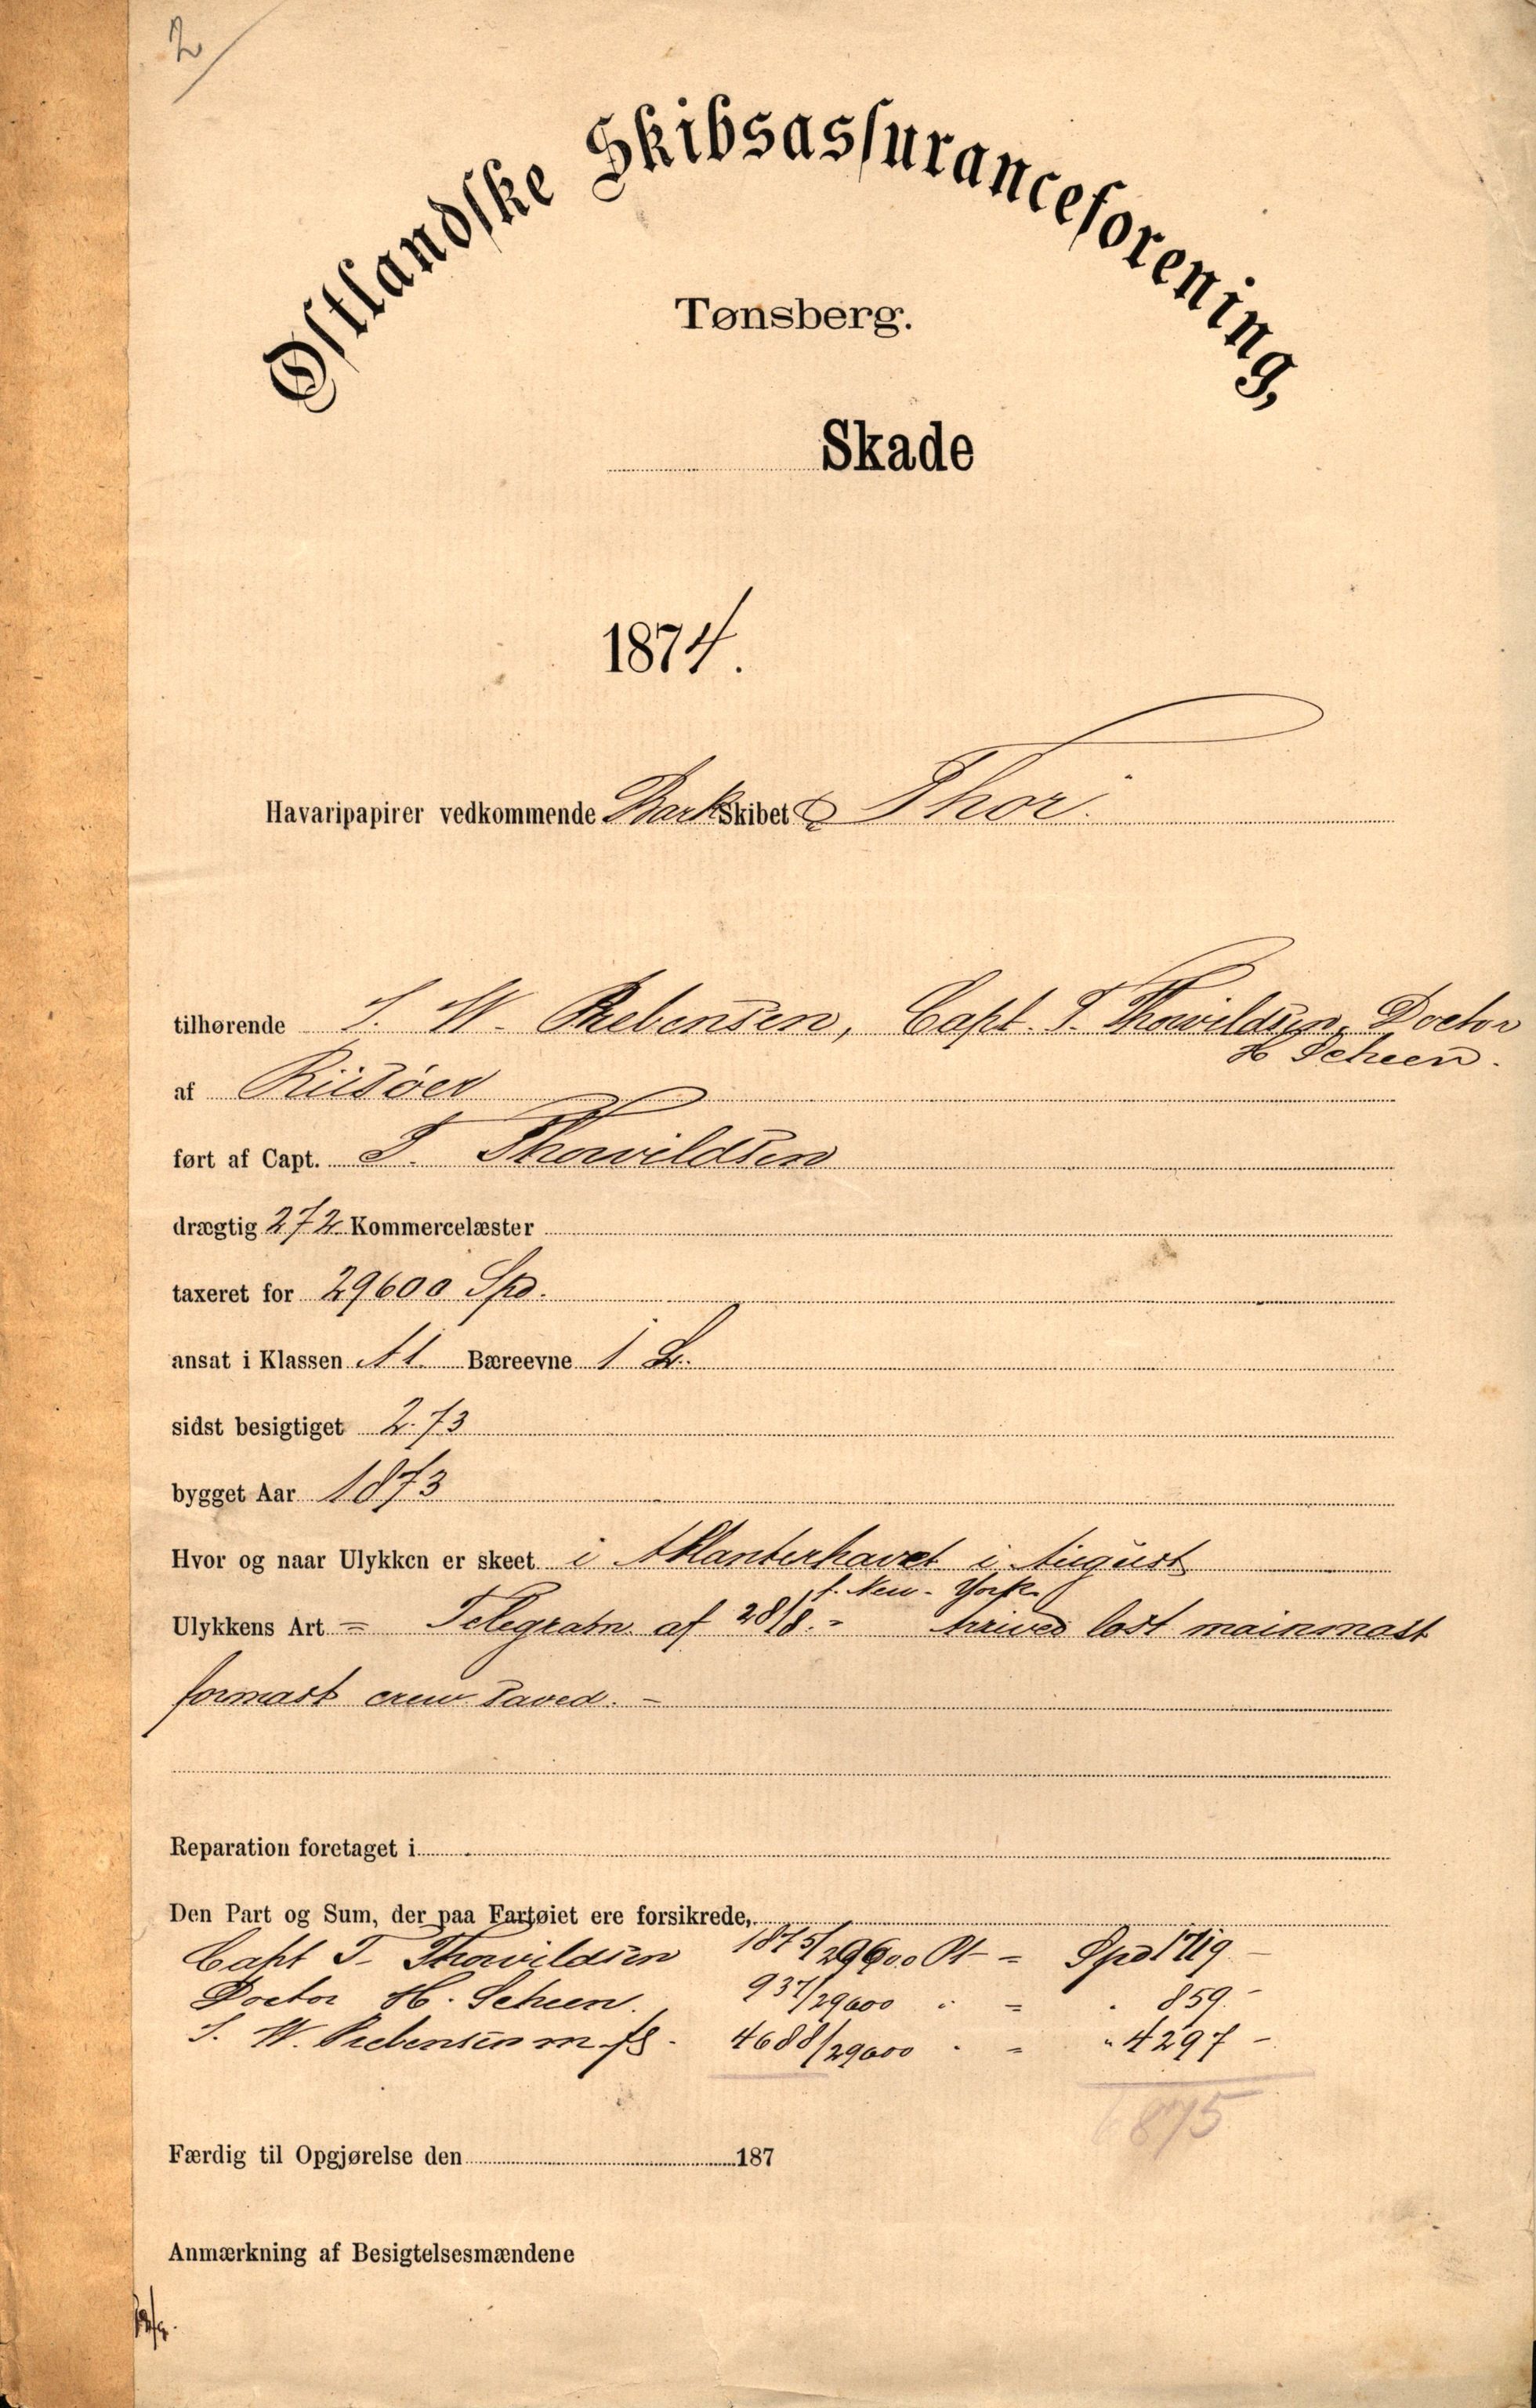 2/
Østlandske Skibsassuranceforening,
Tønsberg.
Skade
1874.
Havaripapirer vedkommende Bark Skibet Thor.
tilhørende S. W. Prebensen, Capt. T. Thorvildsen, Doctor
H Scheen.
af Riisøer
ført af Capt. T. Thorvildsen
drægtig 272 Kommercelæster
taxeret for 29600 Spd.
ansat i Klassen A1. Bæreevne 1
sidst besigtiget 2.73
bygget Aar 1873
Hvor og naar Ulykken er skeet i Atlanterhavet i August
f. New-York
Ulykkens Art = Telegram af 28/8. = Arrived lost mainmast
formast crew saved. -
Reparation foretaget i
Den Part og Sum, der paa Fartøiet ere forsikrede,
Capt T. Thorvildsen 1875/29600 Pt = Spd 1719 -
Doctor H. Scheen. 937/29600 " = " 859 -
S. W. Prebensen m fl. 4688/29600 " = " 4297 -
6875
Færdig til Opgjørelse den 187
Anmærkning af Besigtelsesmændene